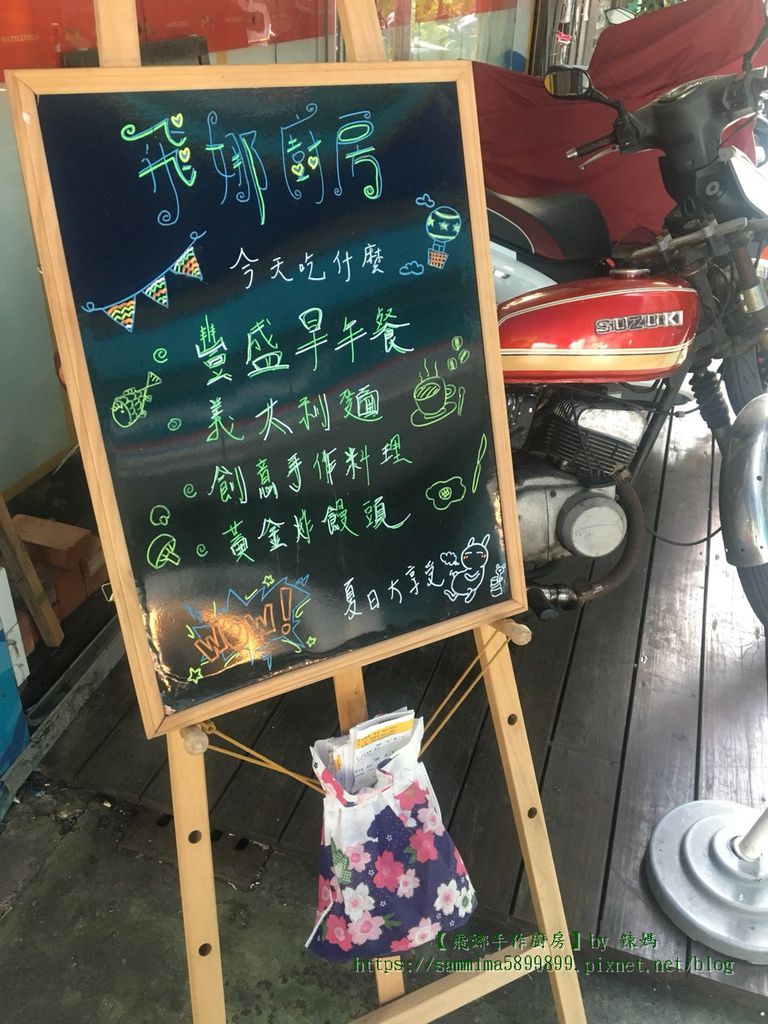 BATTLEFIELD
飛娜廚房
今天吃什麼
豐盛早午餐
義大利麵
創意手作料理
黃金炸饅頭
WOW!
夏日大享受
SUZUKI
【飛娜手作廚房】by 辣媽
https://sammima5899899.pixnet.net/blog